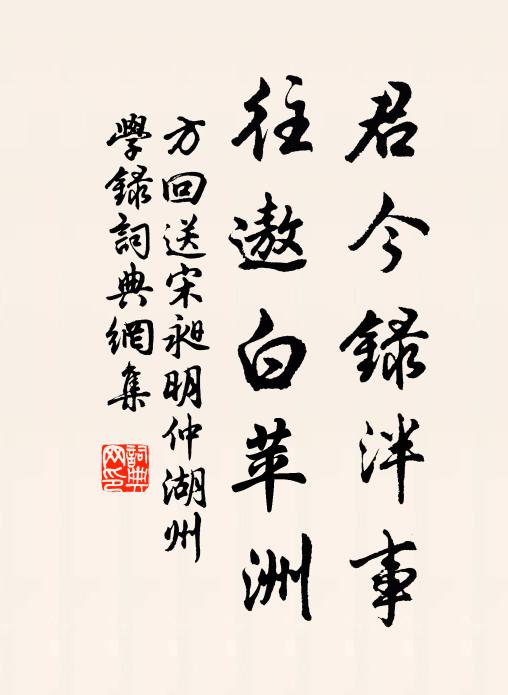 君今錄泮事
往遨白苹洲
方回送宋昶明仲湖州
學錄詞典網集
詞典網印